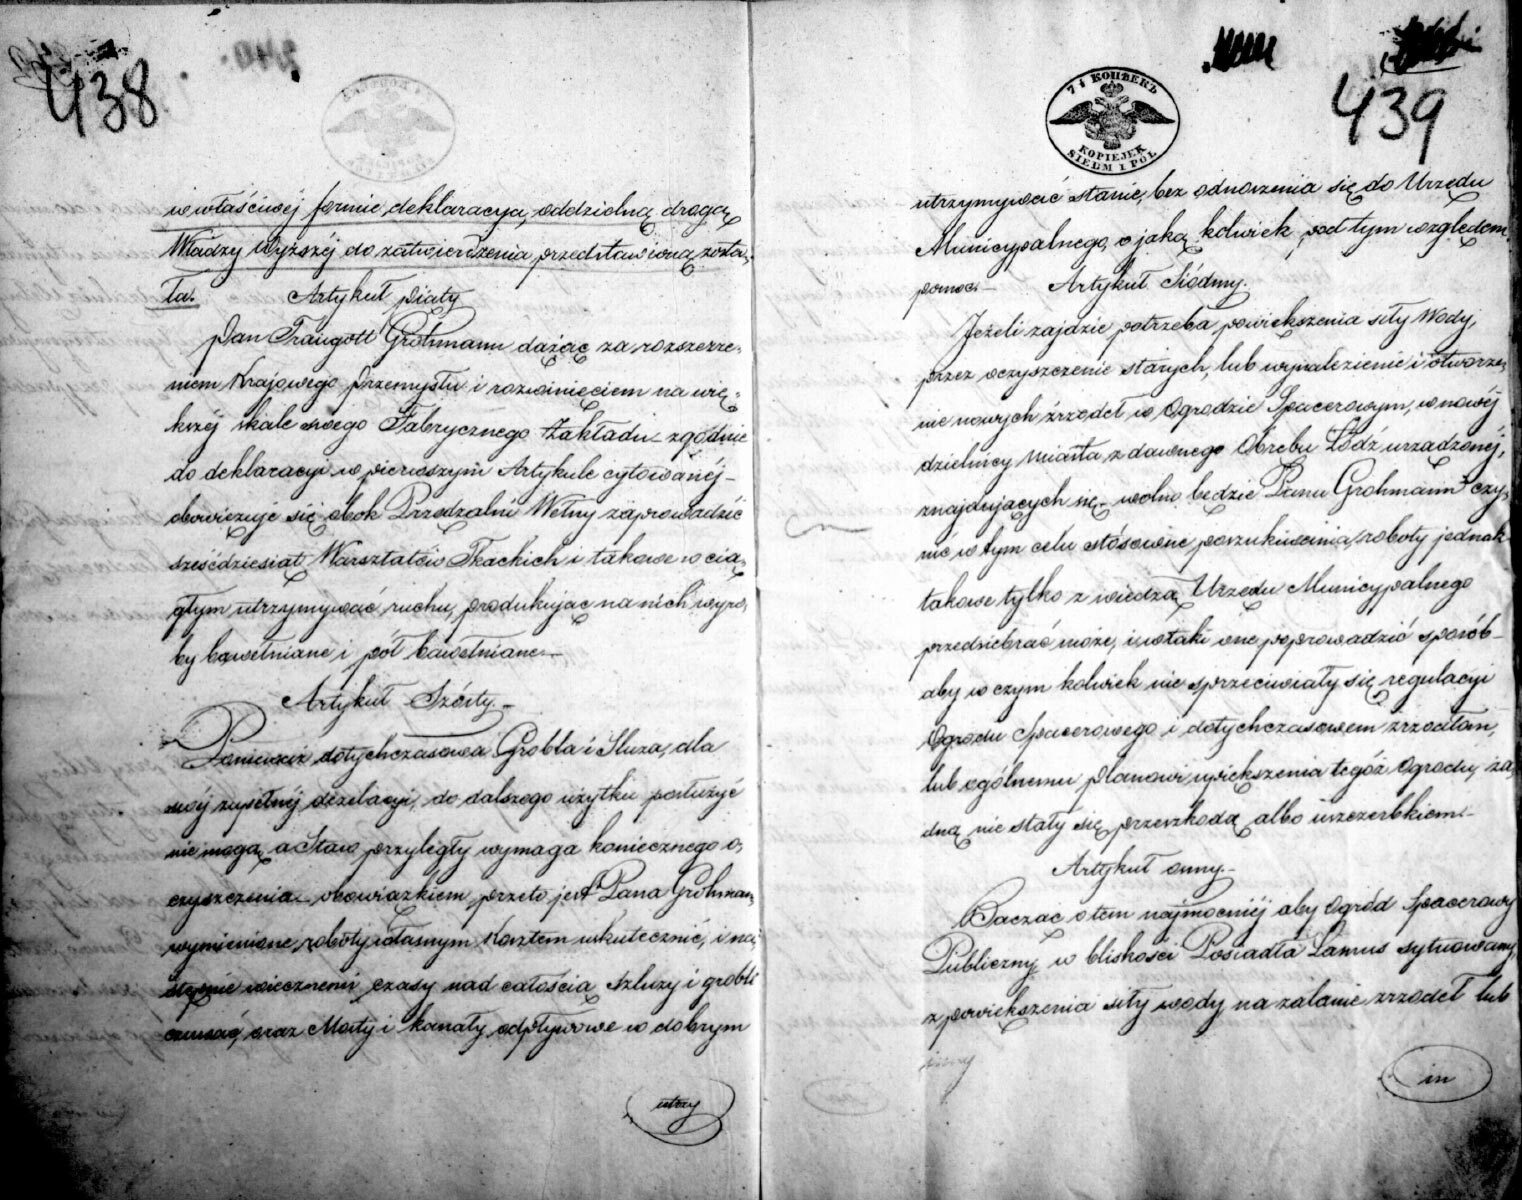 438
w właściwéj formie deklaracyą, oddzielną drogą
Władzy Wyższéj do zatwierdzenia przedstawioną zosta,
ła.
Artykuł piąty
Pan Traugott Grohmann dążąc za rozszerze,
niem Krajowego Przemysłu i rozwinięciem na wię,
kszéj skale swego Fabrycznego Zakładu zgodnie
do deklaracyi w pierwszym Artykule cytowanéj –
obowiązuje się obok Przędzalni Wełny zaprowadzić
sześćdziesiąt Warsztatów Tkackich i takowe w cią,
głym utrzymywać ruchu, produkując na nich wyro,
by bawełniane i pół bawełniane. –
Artykuł Szósty. –
Ponieważ dotychczasowa Grobla i Sluza, dla
swéj zupełnéj dezelacyi, do dalszego użytku posłużyć
nie mogą, a Staw przyległy wymaga koniecznego o,
czyszczenia – obowiązkiem przeto jest Pana Grohman,
wymienione roboty własnym Kosztem uskutecznić, i na,
stępnie wiecznemi czasy nad całością szluzy i grobli
czuwać, oraz Mosty i kanały odpływowe w dobrym
utrzy
439
7½ КОПѢЕКЪ
KOPIEJEK
SIEDM I PÓŁ
utrzymywać stanie, bez odnoszenia się do Urzędu
Municypalnego, o jaką kolwiek, pod tym względem
pomoc. –
Artykuł Siódmy.
Jeżeli zajdzie potrzeba powiększenia siły Wody,
przez oczyszczenie starych, lub wynalezienie i otworze,
nie nowych źrzódeł w Ogrodzie Spacerowym, w nowéj
dzielnicy miasta, z dawnego Obrębu Łódź urządzonéj,
znajdujących się – wolno będzie Panu Grohmann czy,
nić w tym celu stósowne poszukiwania, roboty jednak
takowe tylko z wiedzą Urzędu Municypalnego
przedsiębrać może, i w taki one poprowadzić sposób –
aby w czym kolwiek nie sprzeciwiały się regulacyi
Ogrodu Spacerowego i dotychczasowem zrzódłom,
lub ogólnemu planowi upiększenia tegóż Ogrodu, ża,
dną nie stały się przeszkodą albo uszczerbkiem. –
Artykuł osmy. –
Baczać o tem najmocniéj aby Ogród Spacerowy
Publiczny w bliskości Posiadła Lamus sytuowany,
z powiększenia siły wody na zalanie zrzódeł lub
inny
in